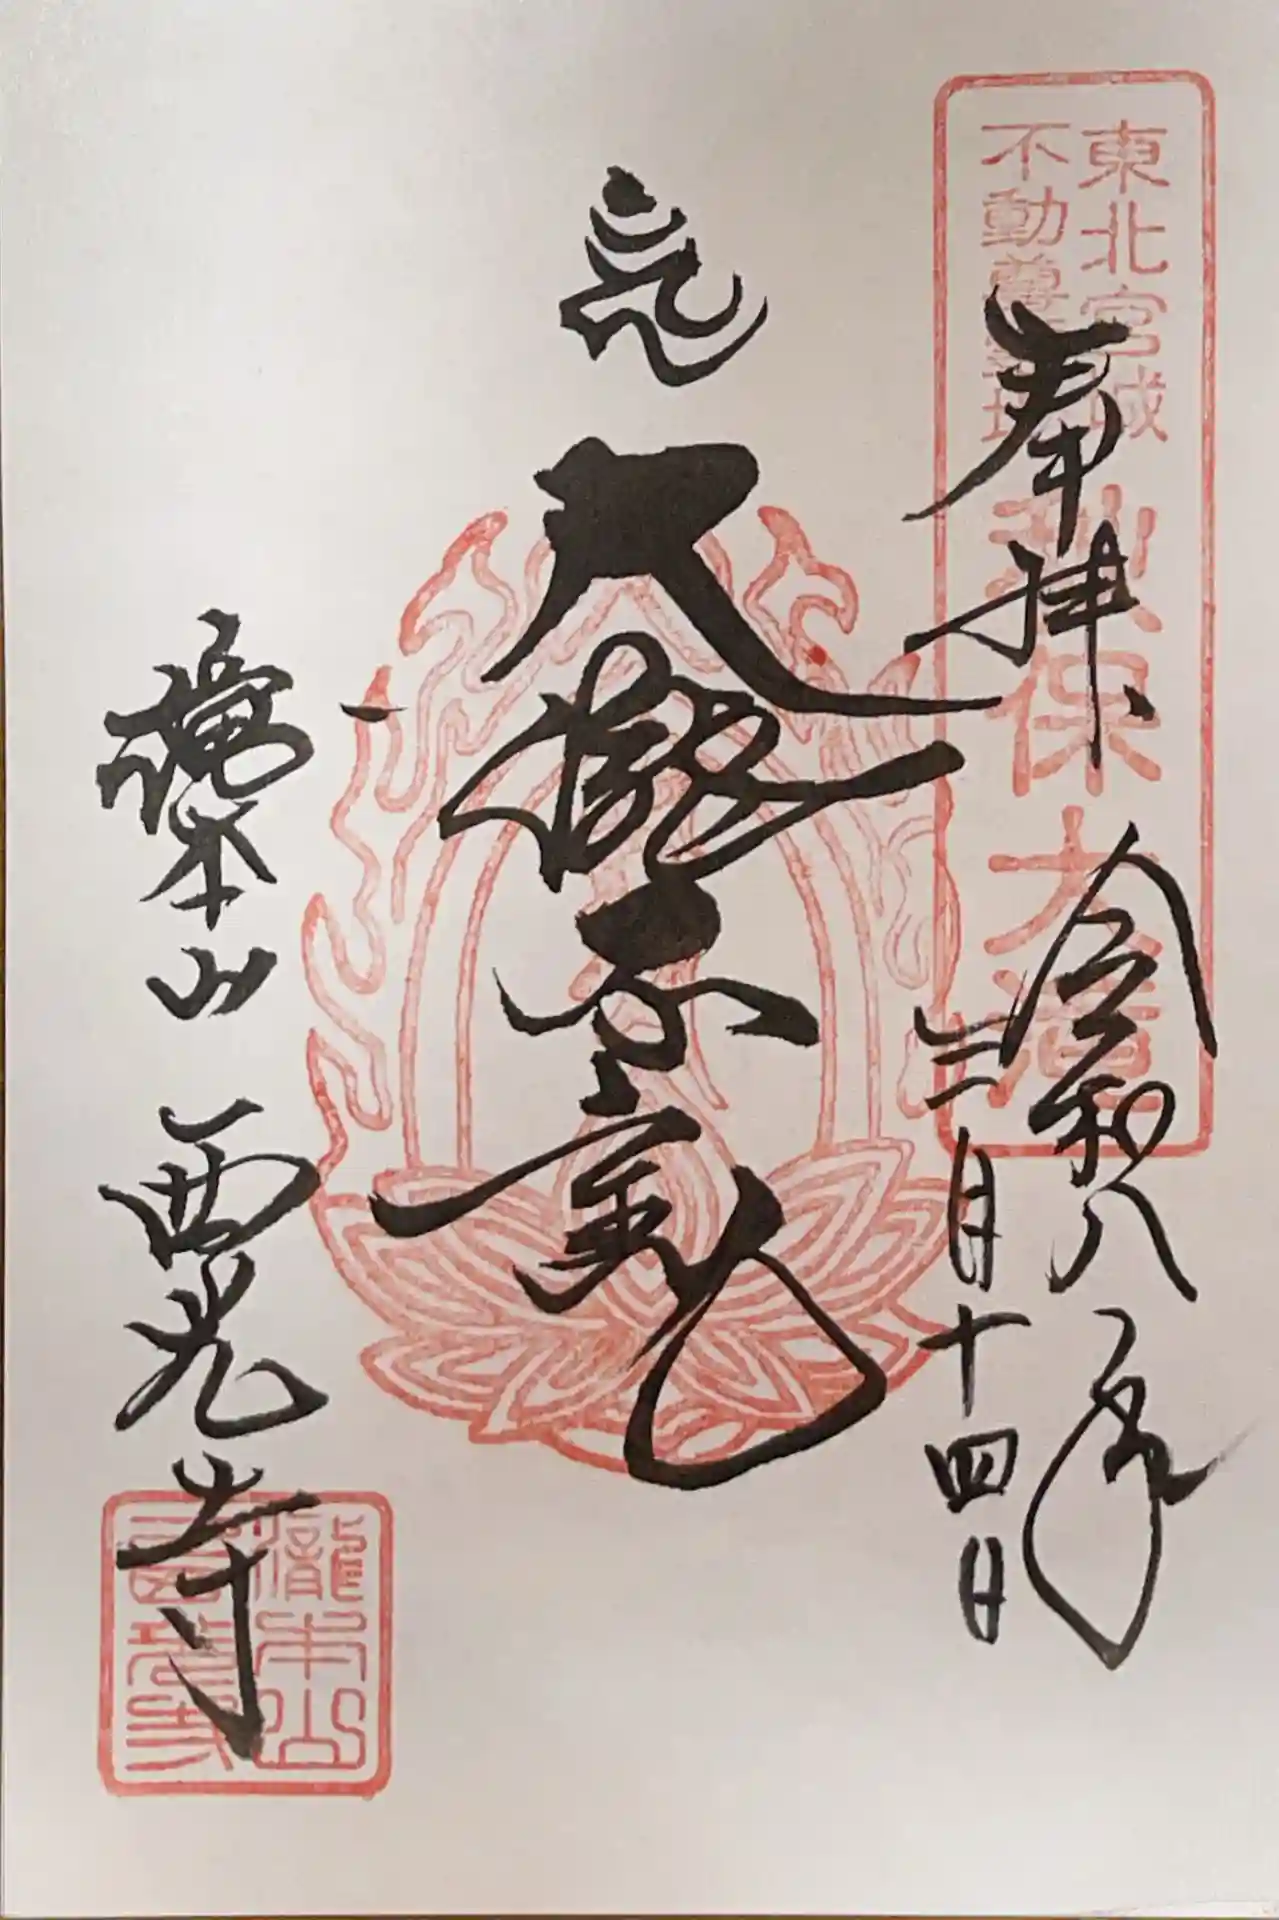 東北宮城
不動尊
保大
奉拝
令和八年
三月十四日
大瀧不動
瀧本山 西光寺
瀧本山
西光寺